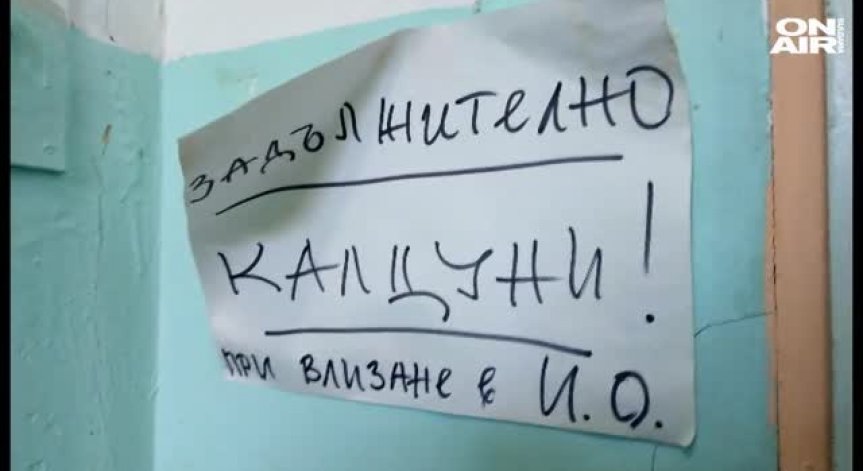 ON
AIR
BULGARIA
ЗАДЪЛЖИТЕЛНО
КАЛЦУНИ!
ПРИ ВЛИЗАНЕ в И.О.